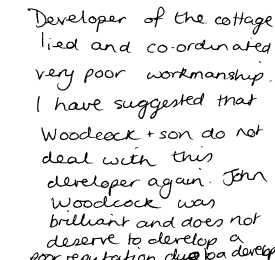 Developer of the cottage
lied and co-ordinated
very poor workmanship.
I have suggested that
Woodcock + son do not
deal with this
developer again. John
Woodcock was
brilliant and does not
deserve to develop a
poor reputation due to a develop